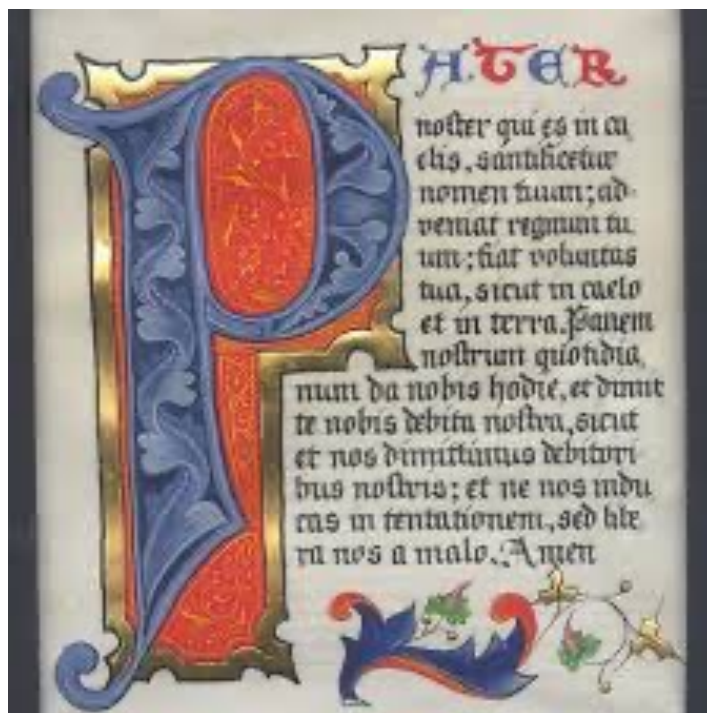 PATER
noster qui es in cæ
elis, santificetur
nomen tuum; ad-
veniat regnum tu
um; fiat voluntas
tua, sicut in caelo
et in terra. Panem
nostrum quotidia
num da nobis hodie, et dimit
te nobis debita nostra, sicut
et nos dimittimus debitori
bus nostris; et ne nos indu
cas in tentationem, sed libe
ra nos a malo. Amen